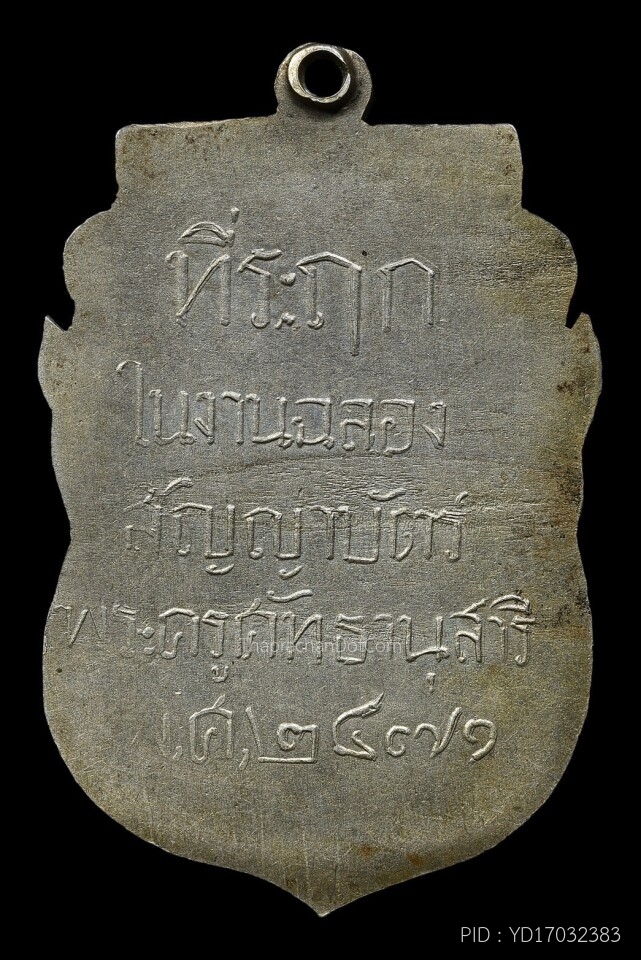 ที่ระฤก
ในงานฉลอง
สัญญาบัตร์
พระครูศัทธานุสารี
พ,ศ,๒๔๗๑
ThaprachanDotCom
PID : YD17032383